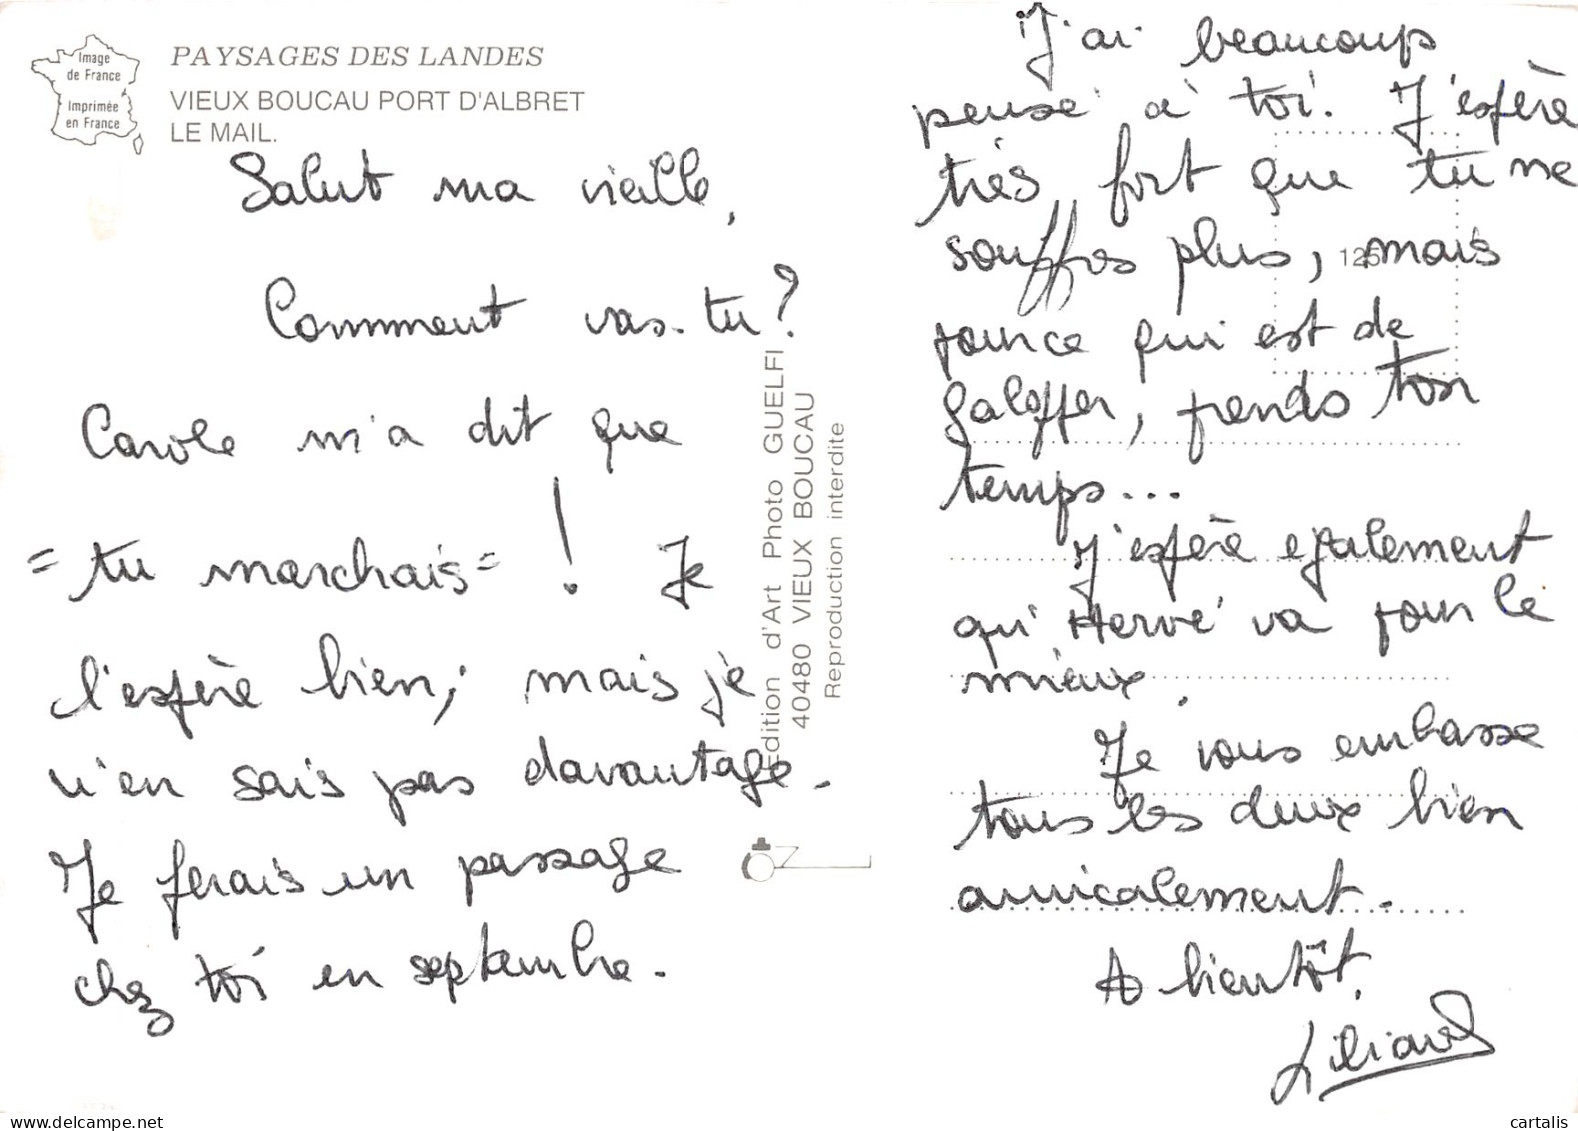 Image
de France
Imprimée
en France
PAYSAGES DES LANDES
VIEUX BOUCAU PORT D'ALBRET
LE MAIL.
Salut ma vieille,
Comment vas-tu?
Carole m'a dit que
"tu marchais"! Je
l'espère bien; mais je
n'en sais pas davantage.
Je ferais un passage
chez toi en septembre.
Edition d'Art Photo GUELFI
40480 VIEUX BOUCAU
Reproduction interdite
J'ai beaucoup
pensé à toi. J'espère
très fort que tu ne
souffres plus, mais
125
pour ce qui est de
galopper, prends ton
temps...
J'espère également
qu'Hervé va pour le
mieux.
Je vous embasse
tous les deux bien
amicalement.
A bientôt.
Liliane
cartalis